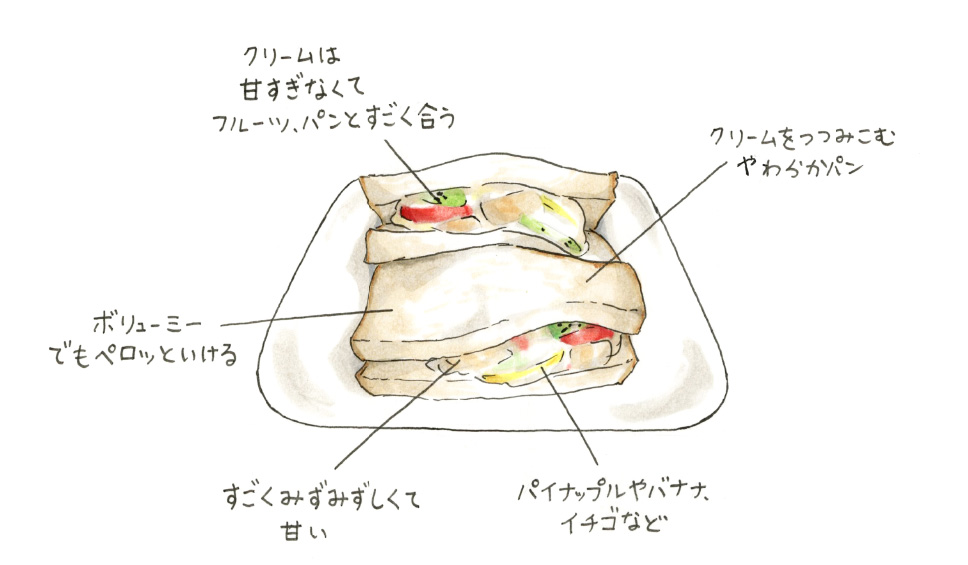 クリームは
甘すぎなくて
フルーツ、パンとすごく合う
クリームをつつみこむ
やわらかパン
ボリューミー
でもペロッといける
すごくみずみずしくて
甘い
パイナップルやバナナ、
イチゴなど